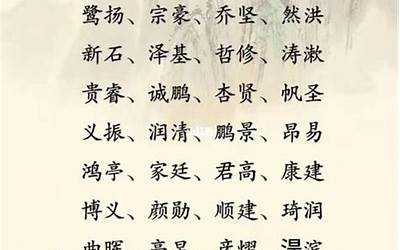 鹭扬、宗豪、乔坚、然洪
新石、泽基、哲修、涛漱
贵睿、诚鹏、杏贤、帆圣
义振、润清、鹏景、昂易
鸿亭、家廷、君高、康建
博义、颜勋、顺建、琦润